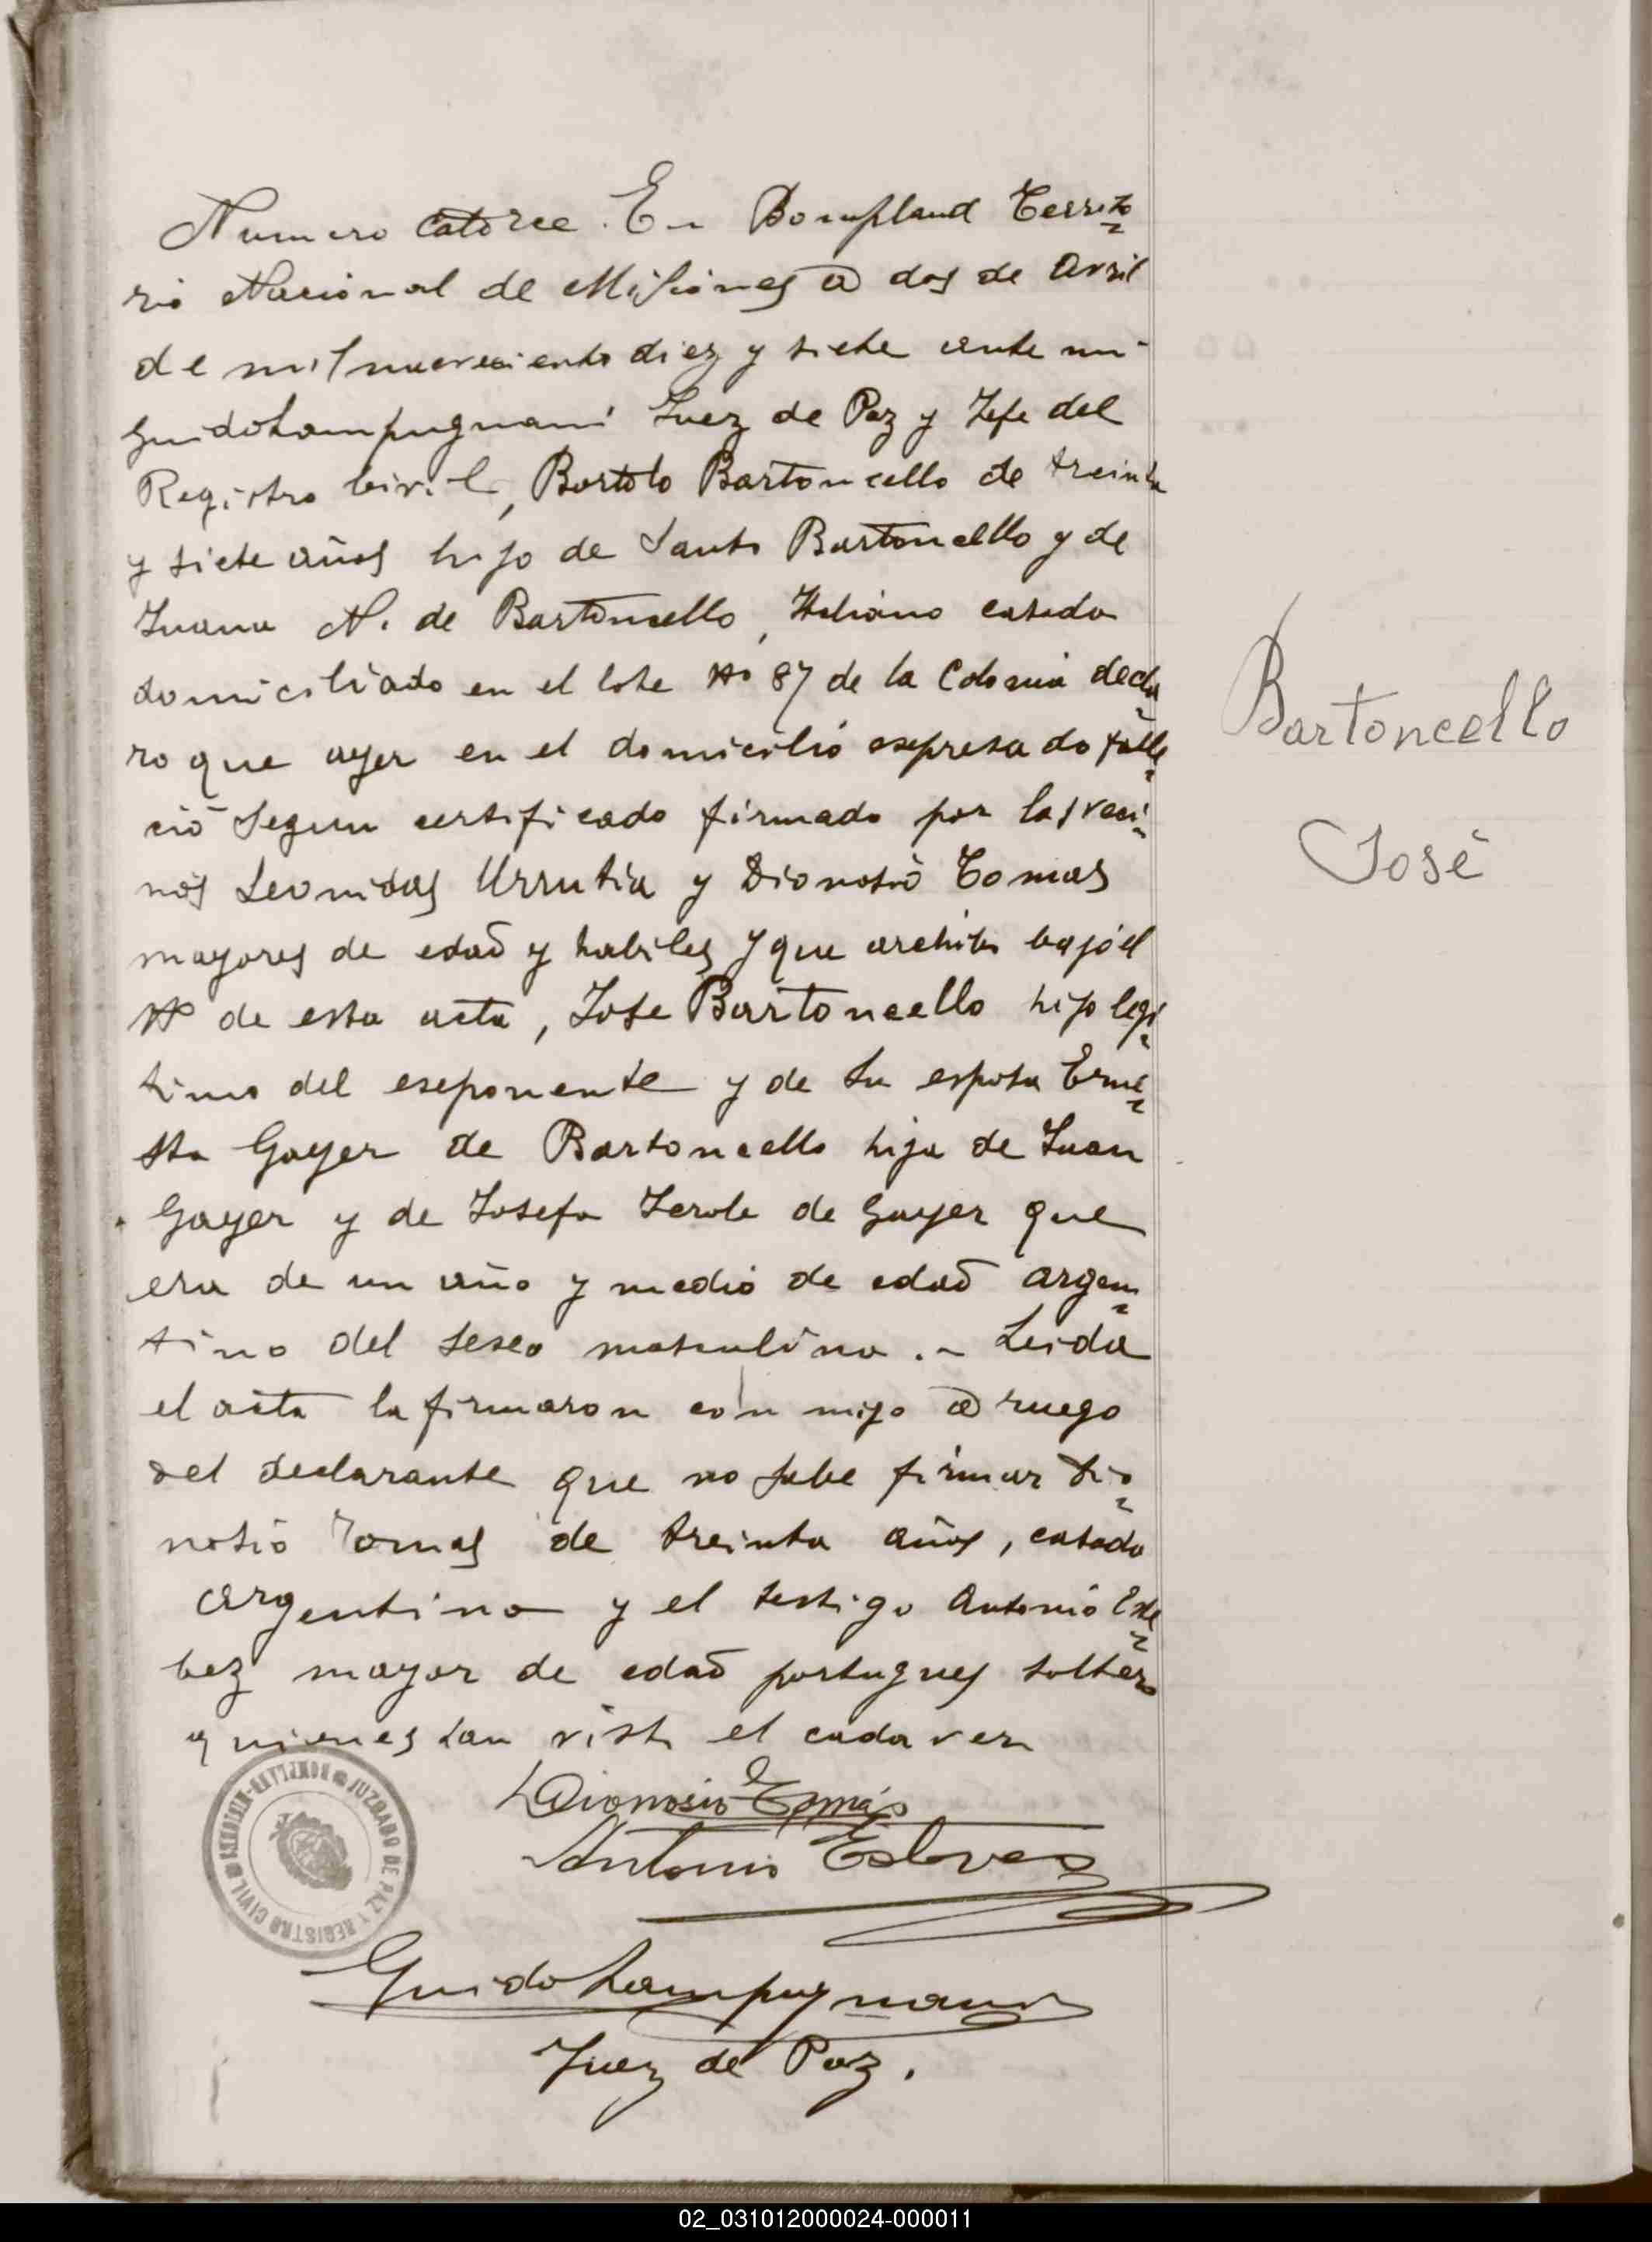 Numero Catorce. En Bompland Territo
rio Nacional de Misiones a dos de Avril
de mil nuevecientos diez y siete ante mi
Guido Lampugnani Juez de Paz y Jefe del
Registro Civil, Bortolo Bartoncello de treinta
y siete años hijo de Santo Bartoncello y de
Juana N. de Bartoncello, Italiano casado
domiciliado en el lote No 87 de la Colonia decla
ro que ayer en el domicilio espresado falle
ció segun certificado firmado por los veci
nos Leonidas Urrutia y Dionosio Tomas
mayores de edad y habiles y que archibo bajo el
No de esta acta, Jose Bartoncello hijo legi
timo del esponente y de su esposa Erne
sta Gayer de Bartoncello hija de Juan
Gayer y de Josefa Zerole de Gayer que
era de un año y medio de edad argen
tino del sexo masculino.- Leida
el acta la firmaron con migo a ruego
del declarante que no sabe firmar Dio
nosio Tomas de treinta años, casado
argentino y el testigo Antonio Este
bez mayor de edad portugues soltero
quienes han visto el cadaver
Dionosio Tomás
Antonio Estevez
Guido Lampugnani
Juez de Paz.
JUZGADO DE PAZ Y REGISTRO CIVIL
Bartoncello
José
02_031012000024-000011